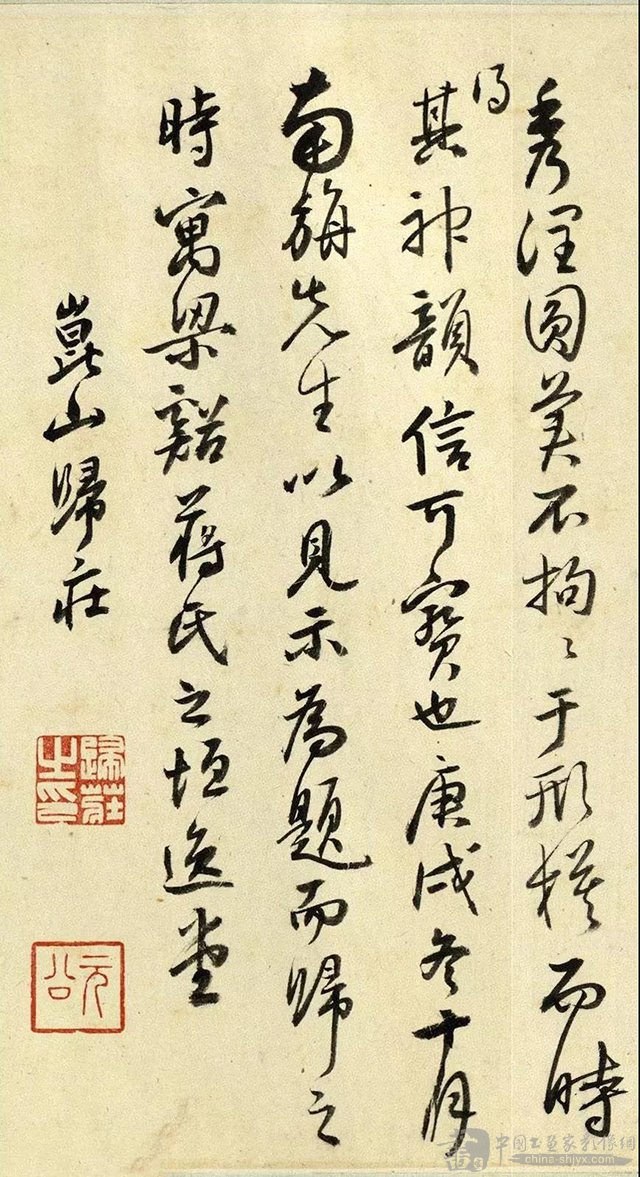 秀潤圓美不拘〻于形模而時
得其神韻信可寶也庚戌冬十月
南旃先生以見示為題而歸之
時寓梁谿蔣氏之垣逸堂
崑山歸莊
歸莊之印
元公
中国书画家影像网
china-shjvx.com